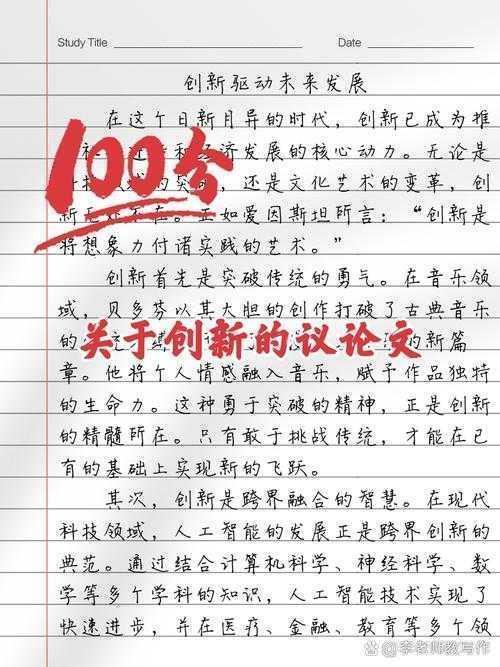 Study Title
Date
创新驱动未来发展
在这个日新月异的时代，创新已成为推
和经济发展的核心动力。无论是
的突破，还是文化艺术的变革，创
新无处不在。正如爱因斯坦所言：“创新是
将想象力付诸实践的艺术。”
100分
创新首先是突破传统的勇气。在音乐领
域，贝多芬以其大胆的创作打破了古典音乐
的
的新篇
关于创新的议论文
章。他将个人情感融入音乐，赋予作品独特
的生命力。这种勇于突破的精神，正是创新
的精髓所在。只有敢于挑战传统，才能在已
有的基础上实现新的飞跃。
其次，创新是跨界融合的智慧。在现代
科技领域，人工智能的发展正是跨界创新的
典范。通过结合计算机科学、神经科学、数
学等多个学科的知识，人工智能技术实现了
快速进步，并在医疗、金融、教育等多个领
@李老师教写作